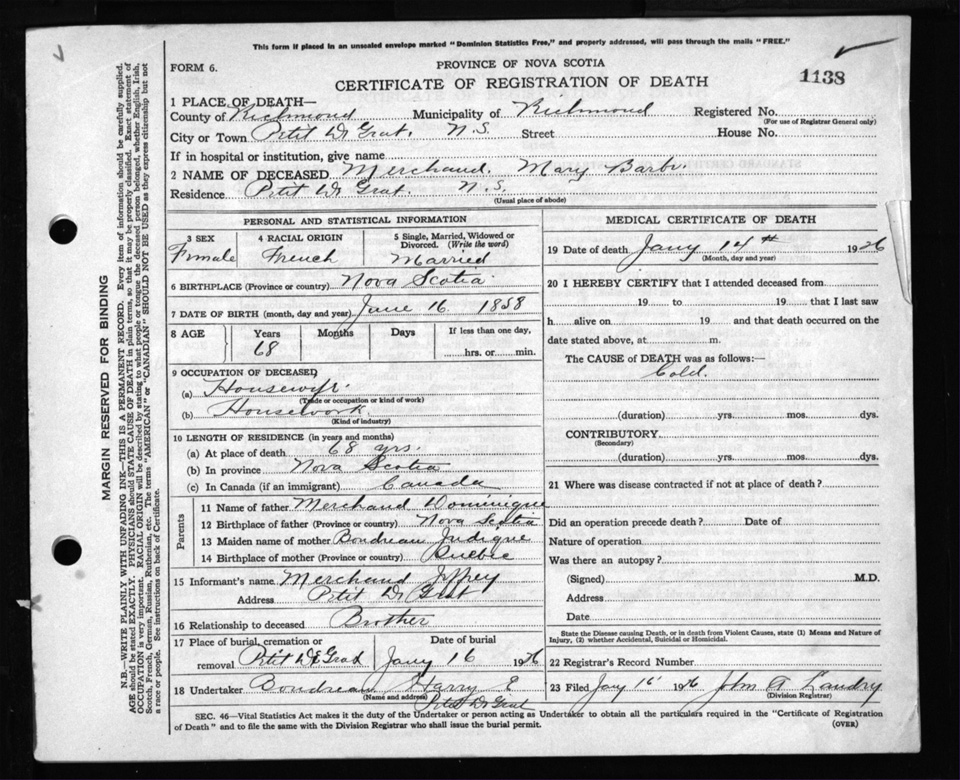 This form if placed in an unsealed envelope marked "Dominion Statistics Free," and properly addressed, will pass through the mails "FREE."
FORM 6.
PROVINCE OF NOVA SCOTIA
CERTIFICATE OF REGISTRATION OF DEATH
1138
1 PLACE OF DEATH—
County of Richmond Municipality of Richmond Registered No.
(For use of Registrar General only)
City or Town Petit De Grat. N.S. Street House No.
If in hospital or institution, give name
2 NAME OF DECEASED Merchand, Mary Barbr.
Residence Petit De Grat. N.S.
(Usual place of abode)
PERSONAL AND STATISTICAL INFORMATION
3 SEX
Female
4 RACIAL ORIGIN
French
5 Single, Married, Widowed or Divorced. (Write the word)
Married
6 BIRTHPLACE (Province or country) Nova Scotia
7 DATE OF BIRTH (month, day and year) June 16 1858
8 AGE Years Months Days If less than one day,
68 hrs. or min.
9 OCCUPATION OF DECEASED
(a) Housewife
(Trade or occupation or kind of work)
(b) Housework
(Kind of industry)
10 LENGTH OF RESIDENCE (in years and months)
(a) At place of death 68 yrs
(b) In province Nova Scotia
(c) In Canada (if an immigrant) Canada
Parents
11 Name of father Merchand Dominique
12 Birthplace of father (Province or country) Nova Scotia
13 Maiden name of mother Boudreau Judique
14 Birthplace of mother (Province or country) Quebec
15 Informant's name Merchand Jeffrey
Address Petit De Grat
16 Relationship to deceased Brother
17 Place of burial, cremation or removal Petit De Grat
Date of burial
Jany 16 1926
18 Undertaker Boudreau Harry E
(Name and address) Petit De Grat
MEDICAL CERTIFICATE OF DEATH
19 Date of death Jany 14th 1926
(Month, day and year)
20 I HEREBY CERTIFY that I attended deceased from
19 to 19 that I last saw
h alive on 19 and that death occurred on the
date stated above, at m.
The CAUSE of DEATH was as follows:—
Cold.
(duration) yrs. mos. dys.
CONTRIBUTORY
(Secondary)
(duration) yrs. mos. dys.
21 Where was disease contracted if not at place of death?
Did an operation precede death? Date of
Nature of operation
Was there an autopsy?
(Signed) M.D.
Address
Date
State the Disease causing Death, or in death from Violent Causes, state (1) Means and Nature of
Injury, (2) whether Accidental, Suicidal or Homicidal.
22 Registrar's Record Number
23 Filed Jany 16 1926 John A Landry
(Division Registrar)
SEC. 46—Vital Statistics Act makes it the duty of the Undertaker or person acting as Undertaker to obtain all the particulars required in the "Certificate of Registration
of Death" and to file the same with the Division Registrar who shall issue the burial permit.
(OVER)
MARGIN RESERVED FOR BINDING
N.B.—WRITE PLAINLY WITH UNFADING INK—THIS IS A PERMANENT RECORD. Every item of information should be carefully supplied.
AGE should be stated EXACTLY. PHYSICIANS should STATE CAUSE OF DEATH in plain terms, so that it may be properly classified. Exact statement of
OCCUPATION is very important. RACIAL ORIGIN will be described by stating to what people or tongue the deceased person belonged, whether English, Irish,
Scotch, French, German, Russian, Ruthenian, etc. The terms "AMERICAN" or "CANADIAN" SHOULD NOT BE USED as they express citizenship but not
a race or people. See instructions on back of Certificate.